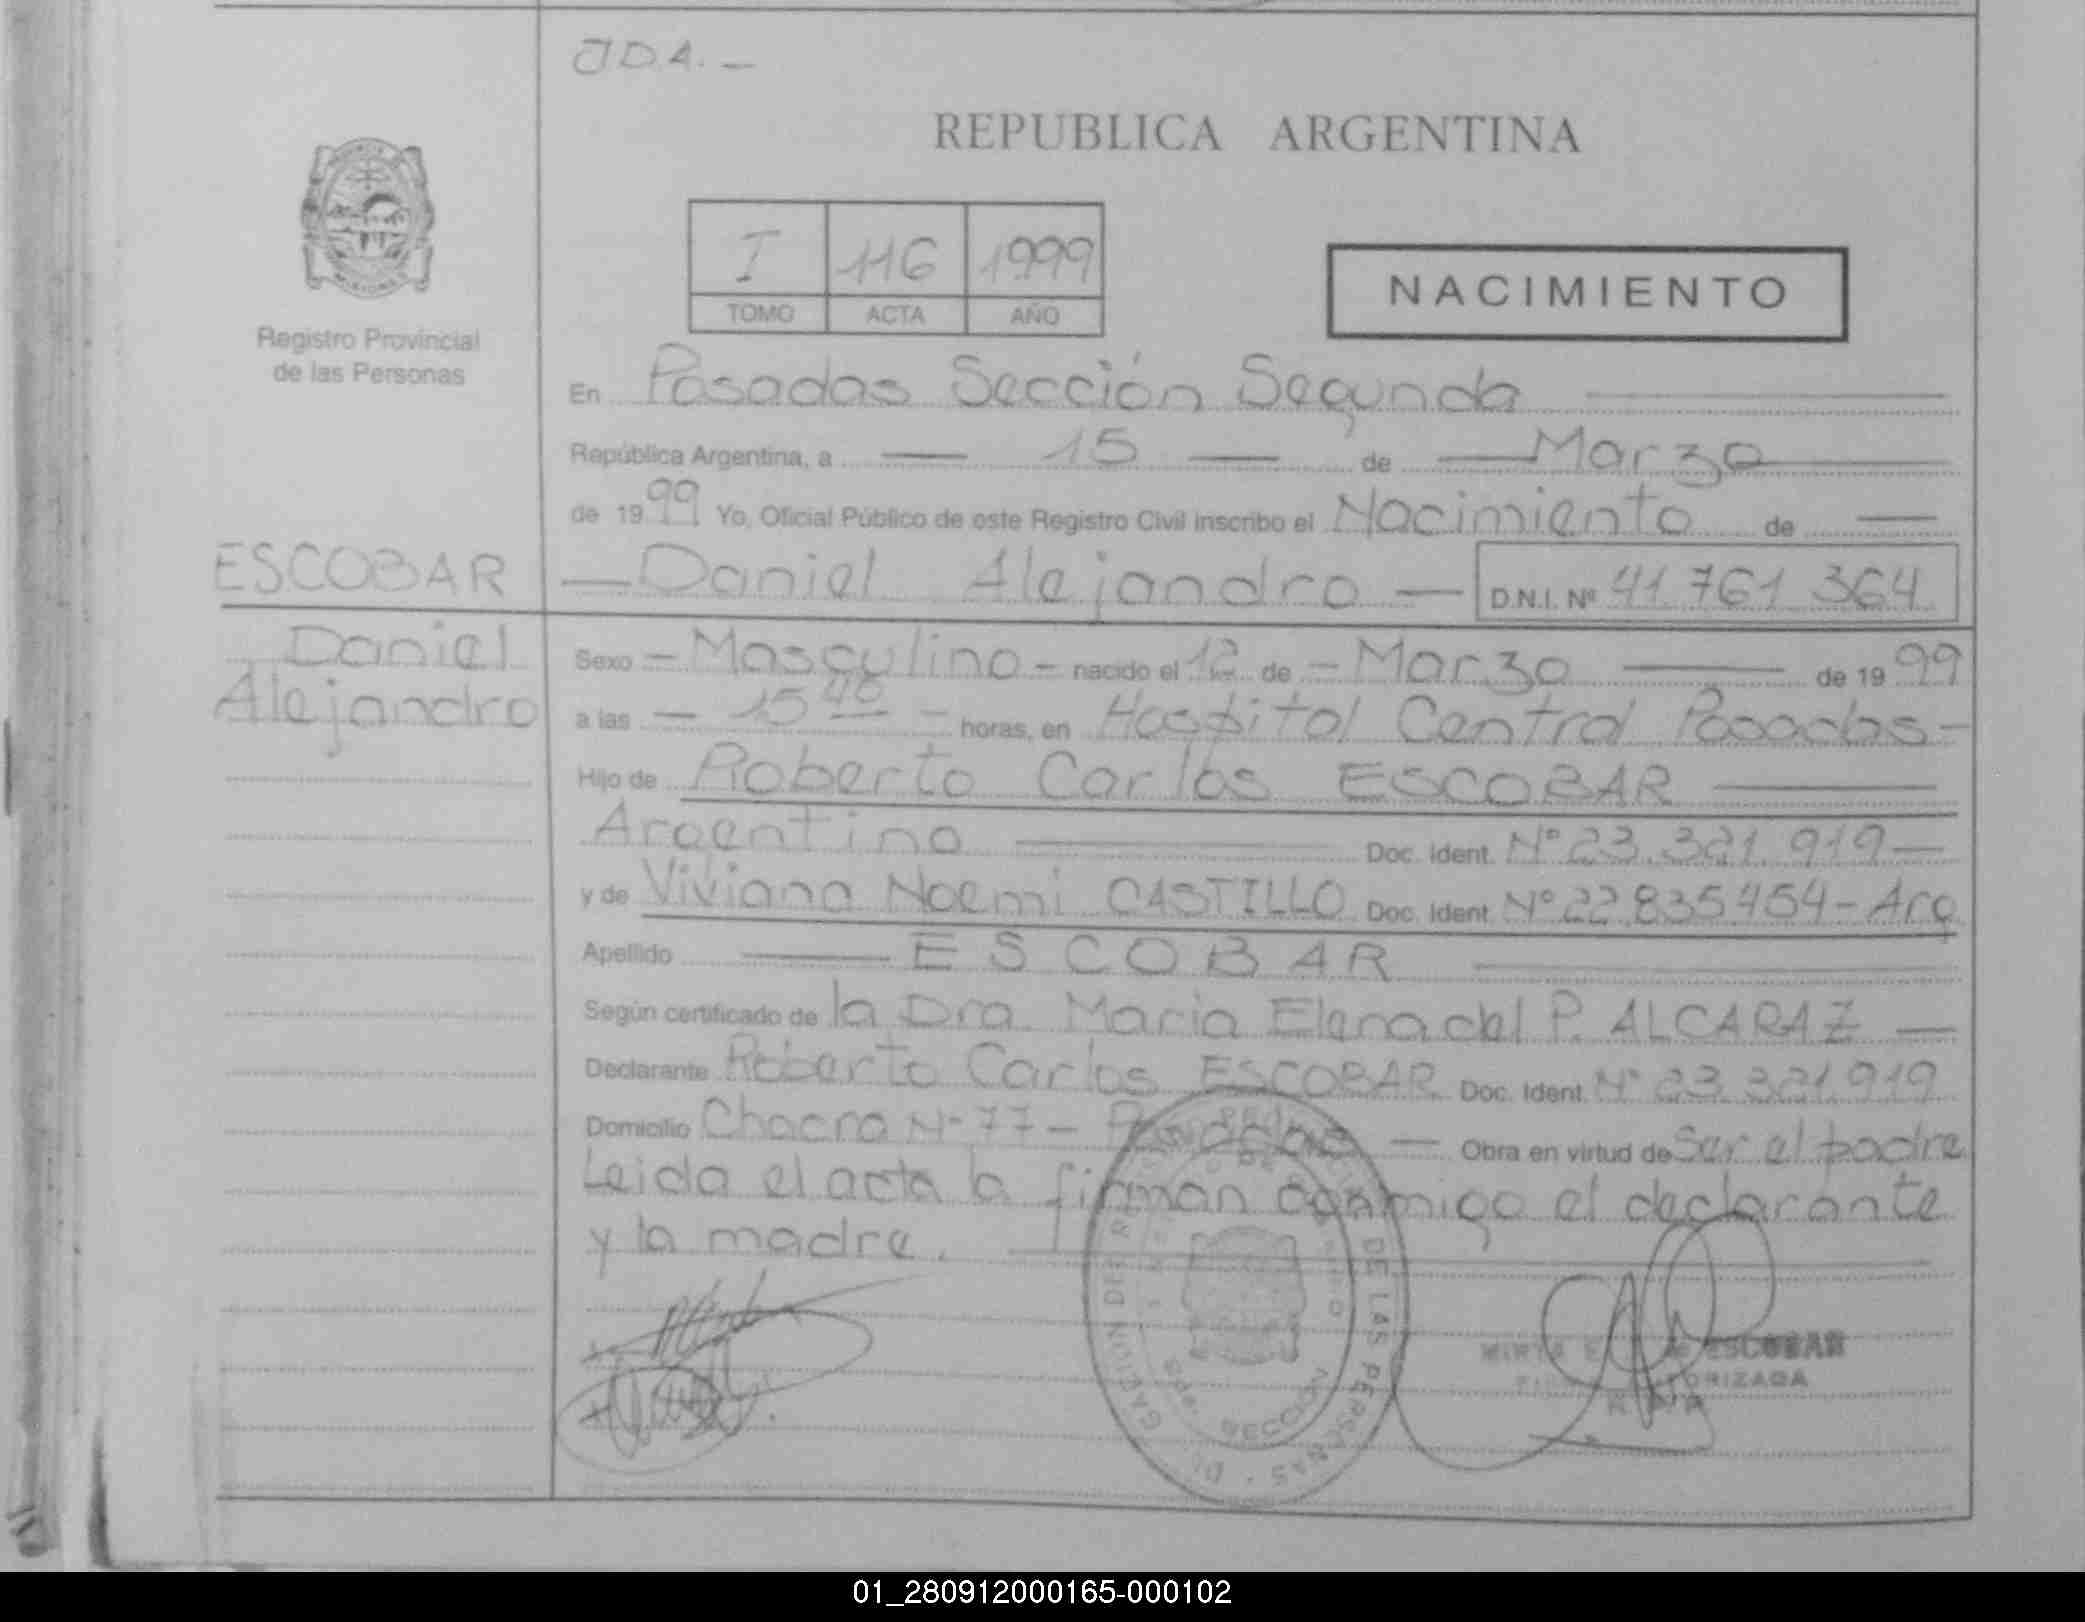 JDA.-
REPUBLICA ARGENTINA
I 116 1999
TOMO ACTA AÑO
NACIMIENTO
Registro Provincial
de las Personas
En Posadas Sección Segunda
República Argentina, a 15 de Marzo
de 1999 Yo, Oficial Público de este Registro Civil inscribo el Nacimiento de
ESCOBAR Daniel Alejandro D.N.I. Nº 41.761.364
Daniel
Alejandro
Sexo - Masculino - nacido el 12 de - Marzo de 1999
a las - 15 40 - horas, en Hospital Central Posadas-
Hijo de Roberto Carlos ESCOBAR
Argentino Doc. Ident. Nº 23.321.919-
y de Viviana Noemi CASTILLO Doc. Ident. Nº 22.835.454- Arg
Apellido ESCOBAR
Según certificado de la Dra. Maria Elena del P. ALCARAZ
Declarante Roberto Carlos ESCOBAR Doc. Ident. Nº 23.321.919
Domicilio Chacra Nº 77 - Posadas - Obra en virtud de Ser el padre
Leida el acta la firman conmigo el declarante
y la madre.
DE LAS PERSONAS
SECCION
ESCOBAR
01_280912000165-000102